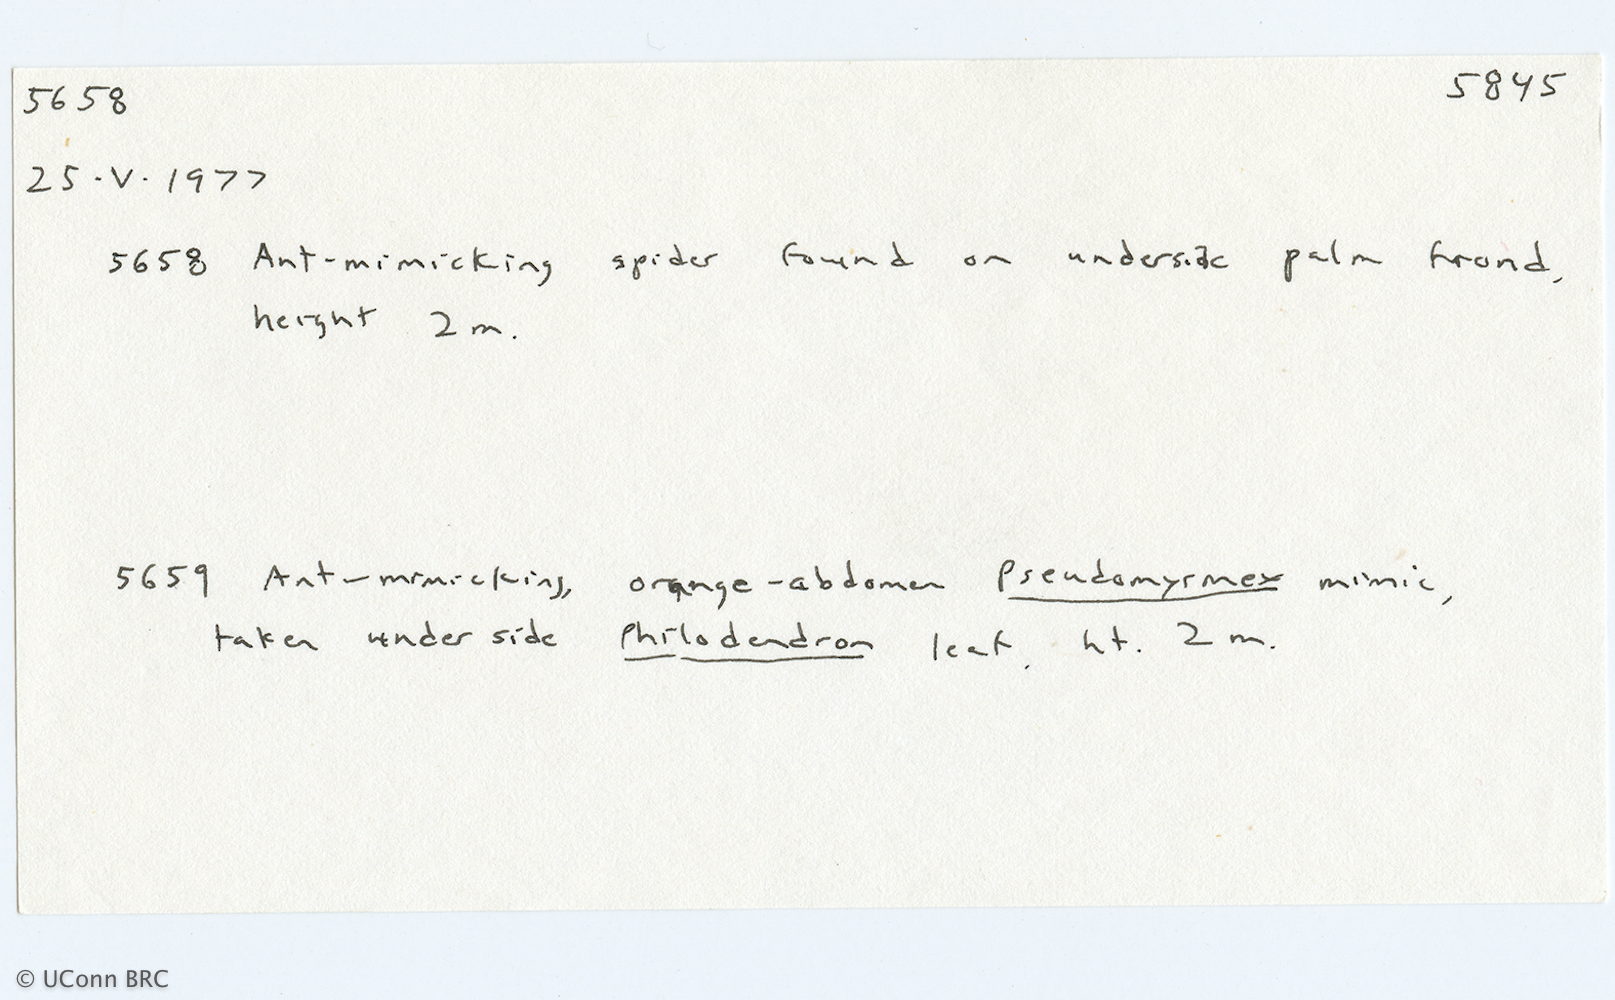 5658 5845
25·V·1977
5658 Ant-mimicking spider found on underside palm frond,
height 2 m.
5659 Ant-mimicking, orange-abdomen Pseudomyrmex mimic,
taken underside Philodendron leaf, ht. 2 m.
© UConn BRC